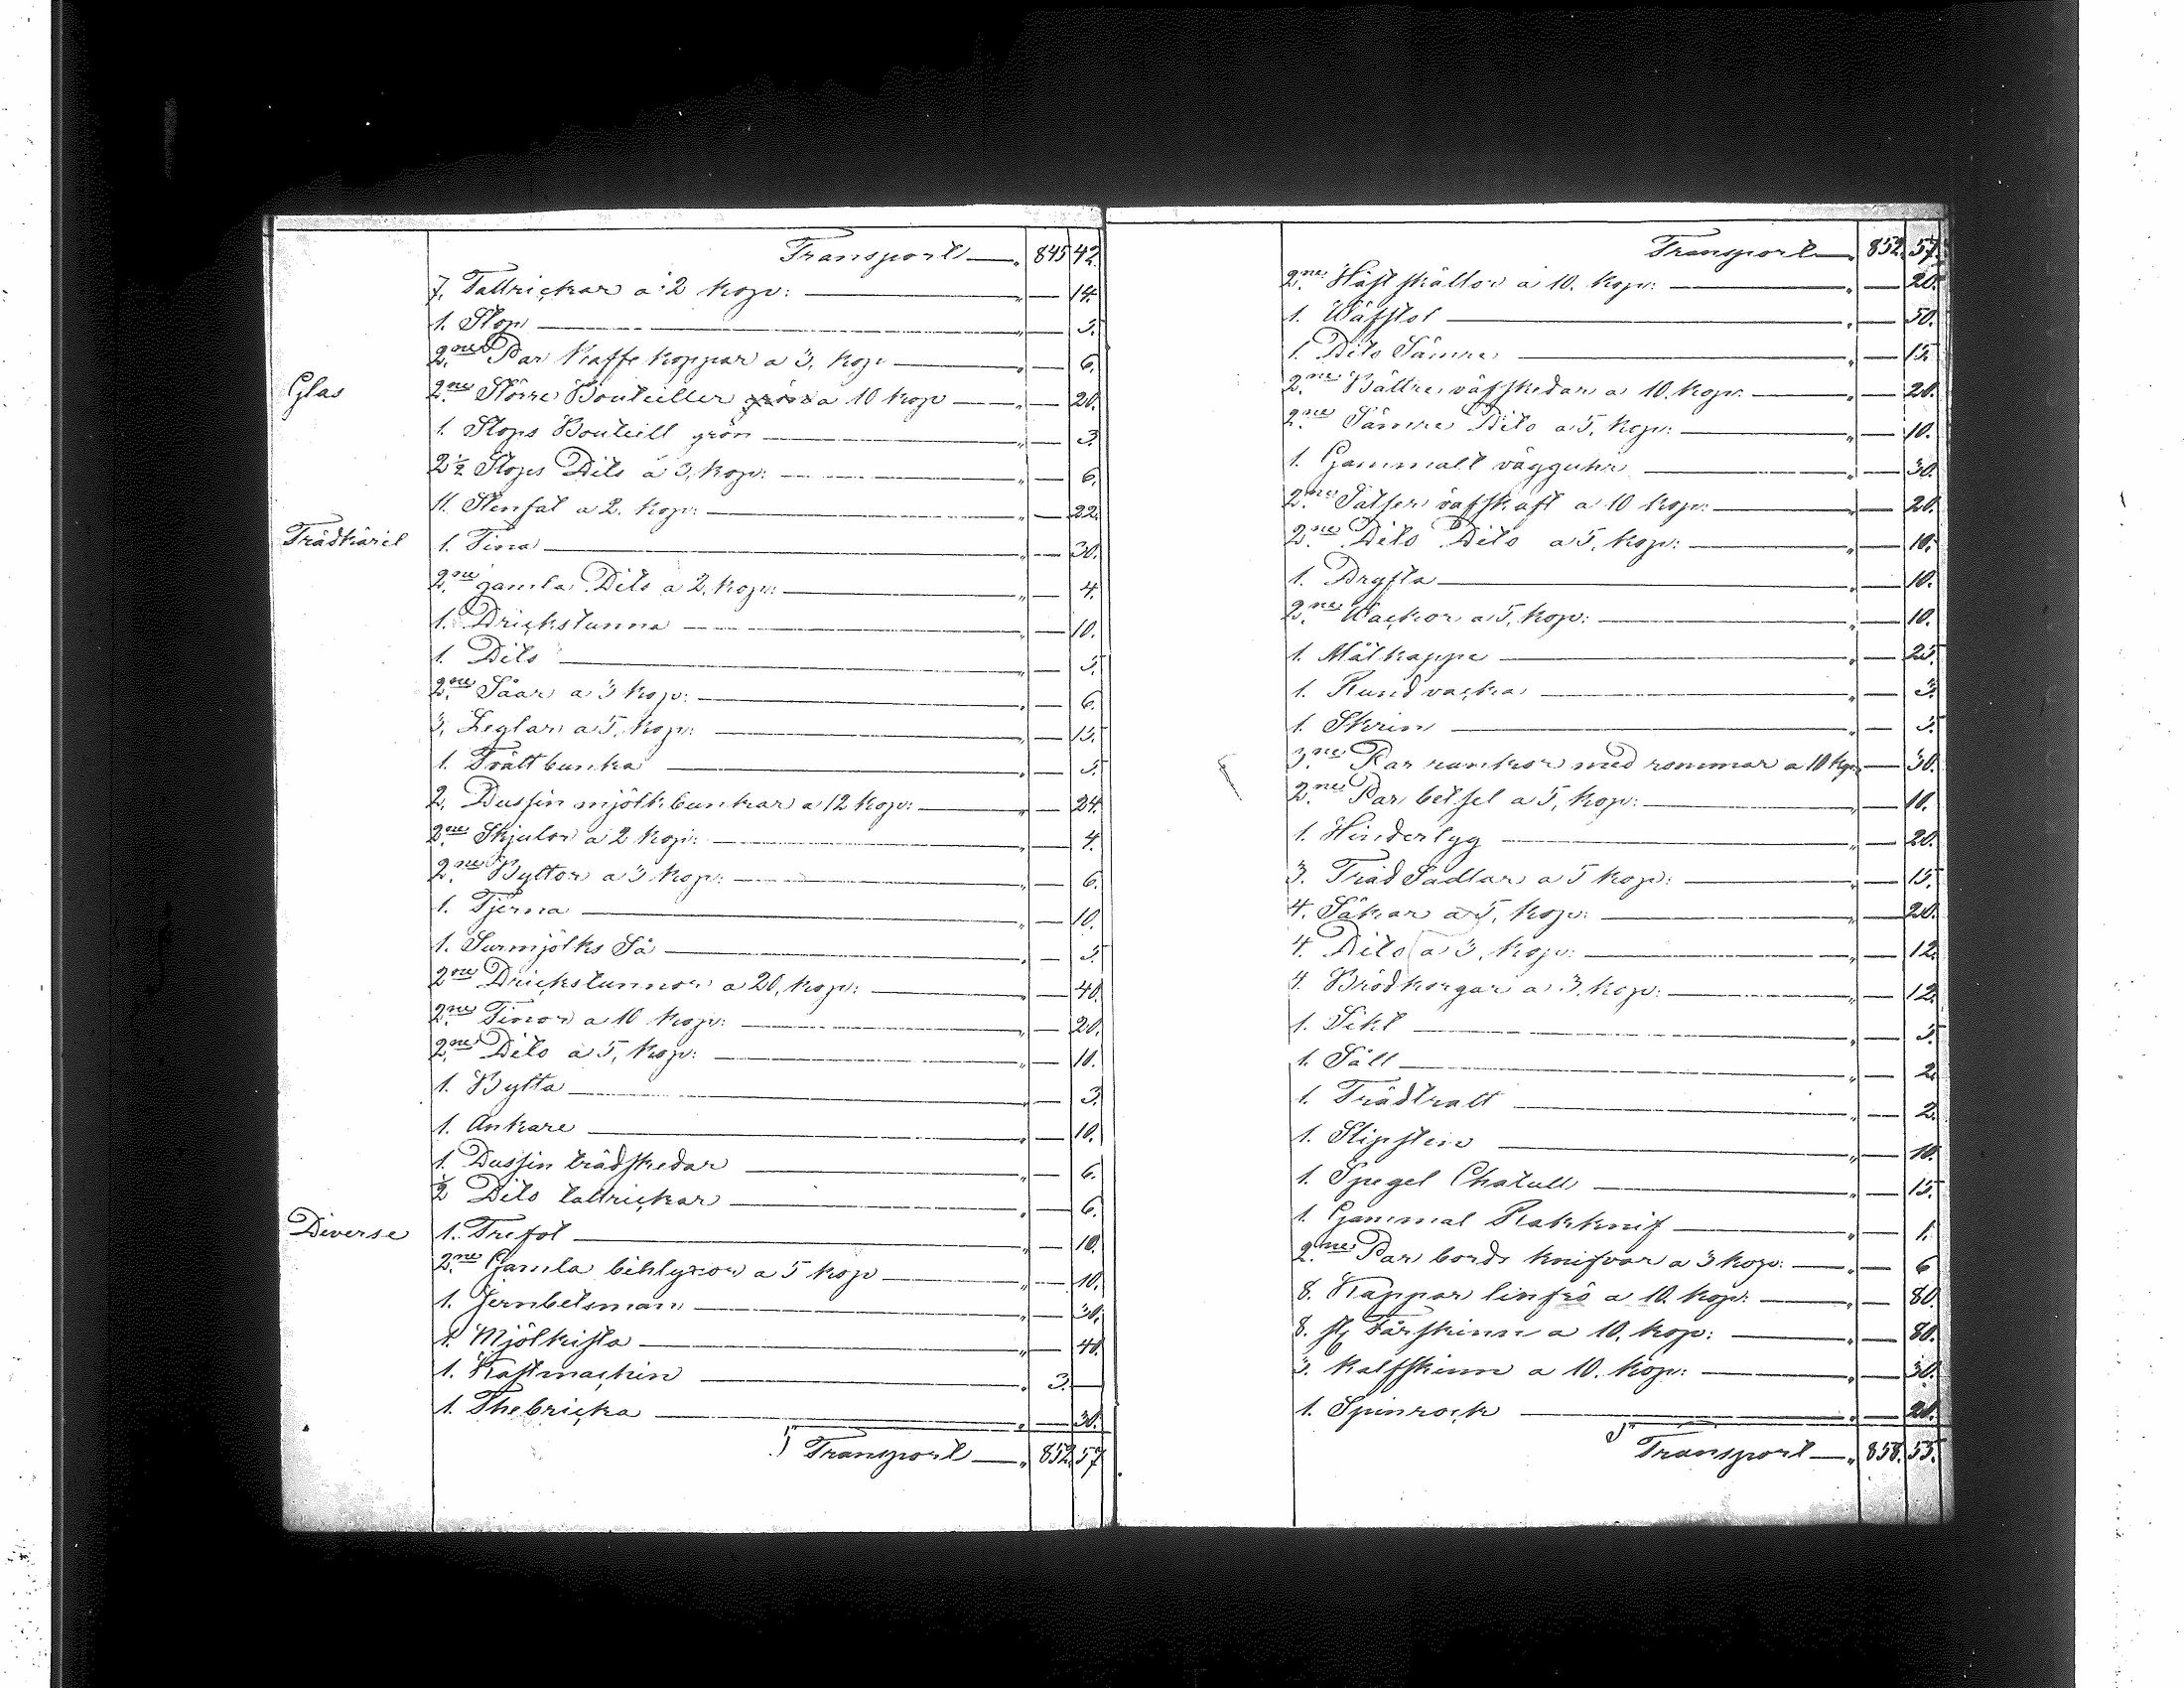 Transport — „ 845 42.
7. Tallrickar a 2 kop: — „ — 14.
1. Stop — „ — 5.
2.ne Par Kaffe koppar a 3, kop — „ — 6.
Glas 2.ne Större Bouteiller gröna a 10 kop — „ — 20.
1. Stops Bouteill grön — „ — 3.
2 ½ Stops Dito a 3, kop: — „ — 6.
11. Stenfat a 2. kop: — „ — 22.
Trädkäril 1. Tina — „ — 30.
2.ne gamla Dito a 2, kop: — „ — 4.
1. Drickstunna — „ — 10.
1. Dito — „ — 5.
2.ne Såar a 3 kop: — „ — 6.
3, Leglar a 5, kop: — „ — 15.
1. Tvättbunka — „ — 5.
2. Dussin mjölkbunkar a 12 kop: — „ — 24.
2.ne Skjulor a 2 kop: — „ — 4.
2.ne Byttor a 3 kop: — „ — 6.
1. Tjerna — „ — 10.
1. Surmjölks Så — „ — 5.
2.ne Drickstunnor a 20, kop: — „ — 40.
2.ne Tinor a 10 kop: — „ — 20.
2.ne Dito a 5, kop: — „ — 10.
1. Bytta — „ — 3.
1. Ankare — „ — 10.
1. Dussin trädskedar — „ — 6.
½ Dito tallrickar — „ — 6.
Diverse 1. Trefot — „ — 10.
2.ne Gamla a 5 kop — „ — 10.
1. Jernbetsman — „ — 30.
1. Mjölkista — „ — 40.
1. Kastmackin — „ 3. —
1. Thebricka — „ — 30.
Transport — „ 852. 57
Transport — „ 852. 57.
2.ne Häst skällor a 10. kop: — „ — 20.
1. Wäfstol — „ — 50.
1. Dito Sämre — „ — 15.
2.ne Bättre väfskedar a 10. kop: — „ — 20.
2.ne Sämre Dito a 5, kop: — „ — 10.
1. Gammalt vägguhr — „ — 30.
2.ne Satser väfskaft a 10 kop: — „ — 20.
2.ne Dito Dito a 5, kop: — „ — 10.
1. Dryfta — „ — 10.
2.ne Wackor a 5, kop: — „ — 10.
1. Målkappe — „ — 25.
1. Rundvacka — „ — 3.
1. Skrin — „ — 5.
3.ne Par rankor med rommar a 10 kop — 30.
2.ne Par betsel a 5, kop: — „ — 10.
1. Hindertyg — „ — 20.
3. Träd Sadlar a 5 kop: — „ — 15.
4. Säkar a 5, kop: — „ — 20.
4. Dito a 3, kop: — „ — 12.
4. Brödkorgar a 3, kop: — „ — 12.
1. Sikt — „ — 5.
1. Såll — „ — 2.
1. Trädtratt — „ — 2.
1. Slipsten — „ — 10.
1. Spegel Chatull — „ — 15.
1. Gammal Rakknif — „ — 1.
2.ne Par bords knifvar a 3 kop: — „ — 6
8. Kappar linfrö a 10. kop: — „ — 80.
8. st Fårskinn a 10. kop: — „ — 80.
3. Kalfskinn a 10. kop: — „ — 30.
1. Spinrock — „ — 20.
Transport — „ 858. 55.